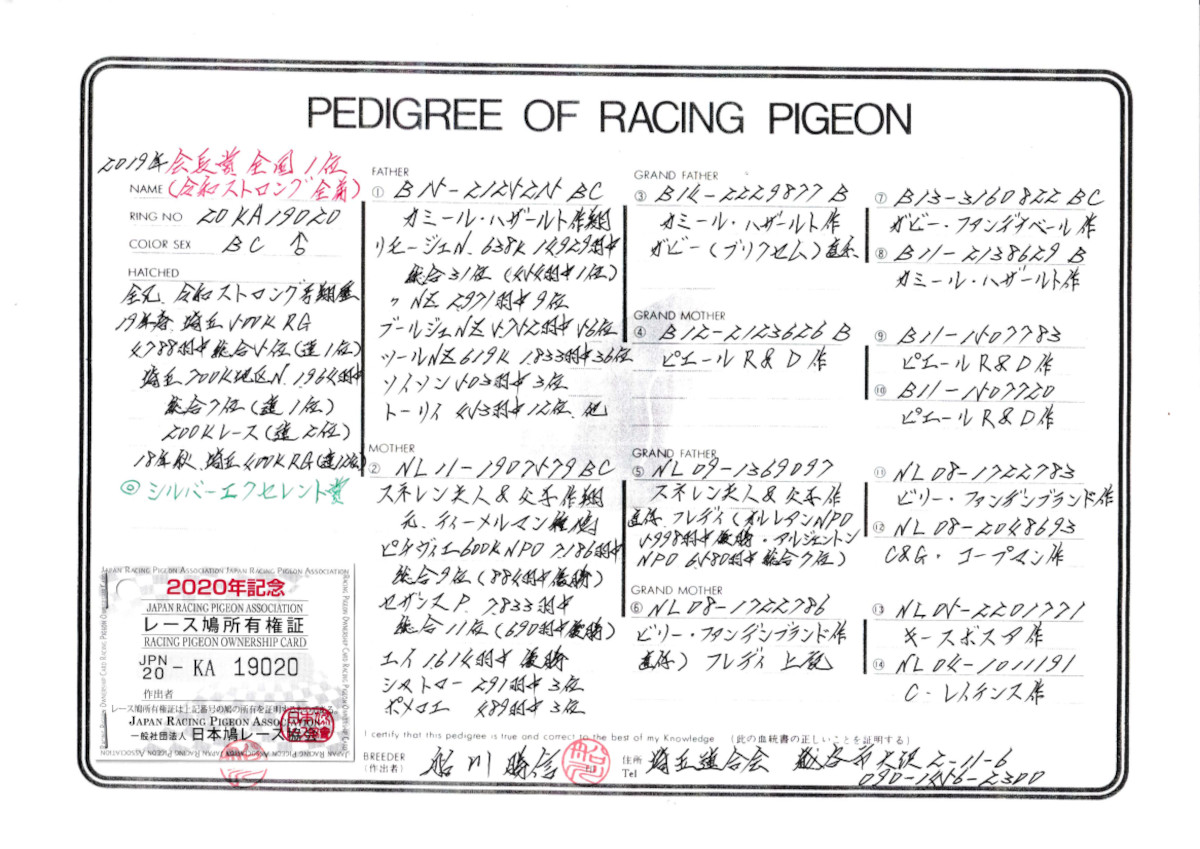 PEDIGREE OF RACING PIGEON
2019年 会長賞 全国1位
NAME (令和ストロング全弟)
RING NO 20KA19020
COLOR SEX BC ♂
HATCHED
全兄、令和ストロング号翔歴
19年春 埼玉500K RG
4788羽中総合5位(連1位)
埼玉700K地区N. 1964羽中
総合7位(連1位)
200Kレース(連2位)
18年秋 埼玉400K RG(連12位)
◎シルバーエクセレント賞
JAPAN RACING PIGEON ASSOCIATION JAPAN RACING PIGEON ASSOCIATION
2020年記念
JAPAN RACING PIGEON ASSOCIATION
レース鳩所有権証
RACING PIGEON OWNERSHIP CARD
JPN 20 - KA 19020
作出者
レース鳩所有権証は上記番号の鳩の所有を証明するものである。
JAPAN RACING PIGEON ASSOCIATION
一般社団法人 日本鳩レース協会
FATHER
① B15-2125215 BC
カミール・ハザールト作翔
リモージュN. 638K 14929羽中
総合31位 (454羽中1位)
〃 NZ 2971羽中9位
ブールジュNZ 5752羽中56位
ツールNZ 619K 1833羽中36位
ソイソン 503羽中3位
トーリイ 453羽中12位 他
MOTHER
② NL11-1907579 BC
スネレン夫人&父子作翔
元、ティーメルマン種鳩
ピティヴィエ600K NPO 7186羽中
総合9位 (884羽中優勝)
セザンヌP. 7833羽中
総合11位 (690羽中優勝)
エイ 1614羽中 優勝
シメトロー 291羽中3位
ポメロエ 489羽中3位
GRAND FATHER
③ B14-2229877 B
カミール・ハザールト作
ガビー(ブリクセム)直系
GRAND MOTHER
④ B12-2123626 B
ピエール R&D作
GRAND FATHER
⑤ NL09-1369097
スネレン夫人&父子作
直仔、フレディ(オルレアンNPO
5998羽中優勝・アルジェントン
NPO 6580羽中総合7位)
GRAND MOTHER
⑥ NL08-1722786
ビリー・ファンデンブランド作
直仔) フレディ 上記
⑦ B13-3160822 BC
ガビー・ファンデナベール作
⑧ B11-2138629 B
カミール・ハザールト作
⑨ B11-1507783
ピエール R&D作
⑩ B11-1507720
ピエール R&D作
⑪ NL08-1722783
ビリー・ファンデンブランド作
⑫ NL08-2048693
C&G・コープマン作
⑬ NL05-2201771
キースボスア作
⑭ NL04-1011191
C・レイテンス作
I certify that this pedigree is true and correct to the best of my Knowledge (此の血統書の正しいことを証明する)
BREEDER (作出者) 船川勝信 住所 埼玉連合会 越谷市大沢2-11-6
Tel 090-1456-2300